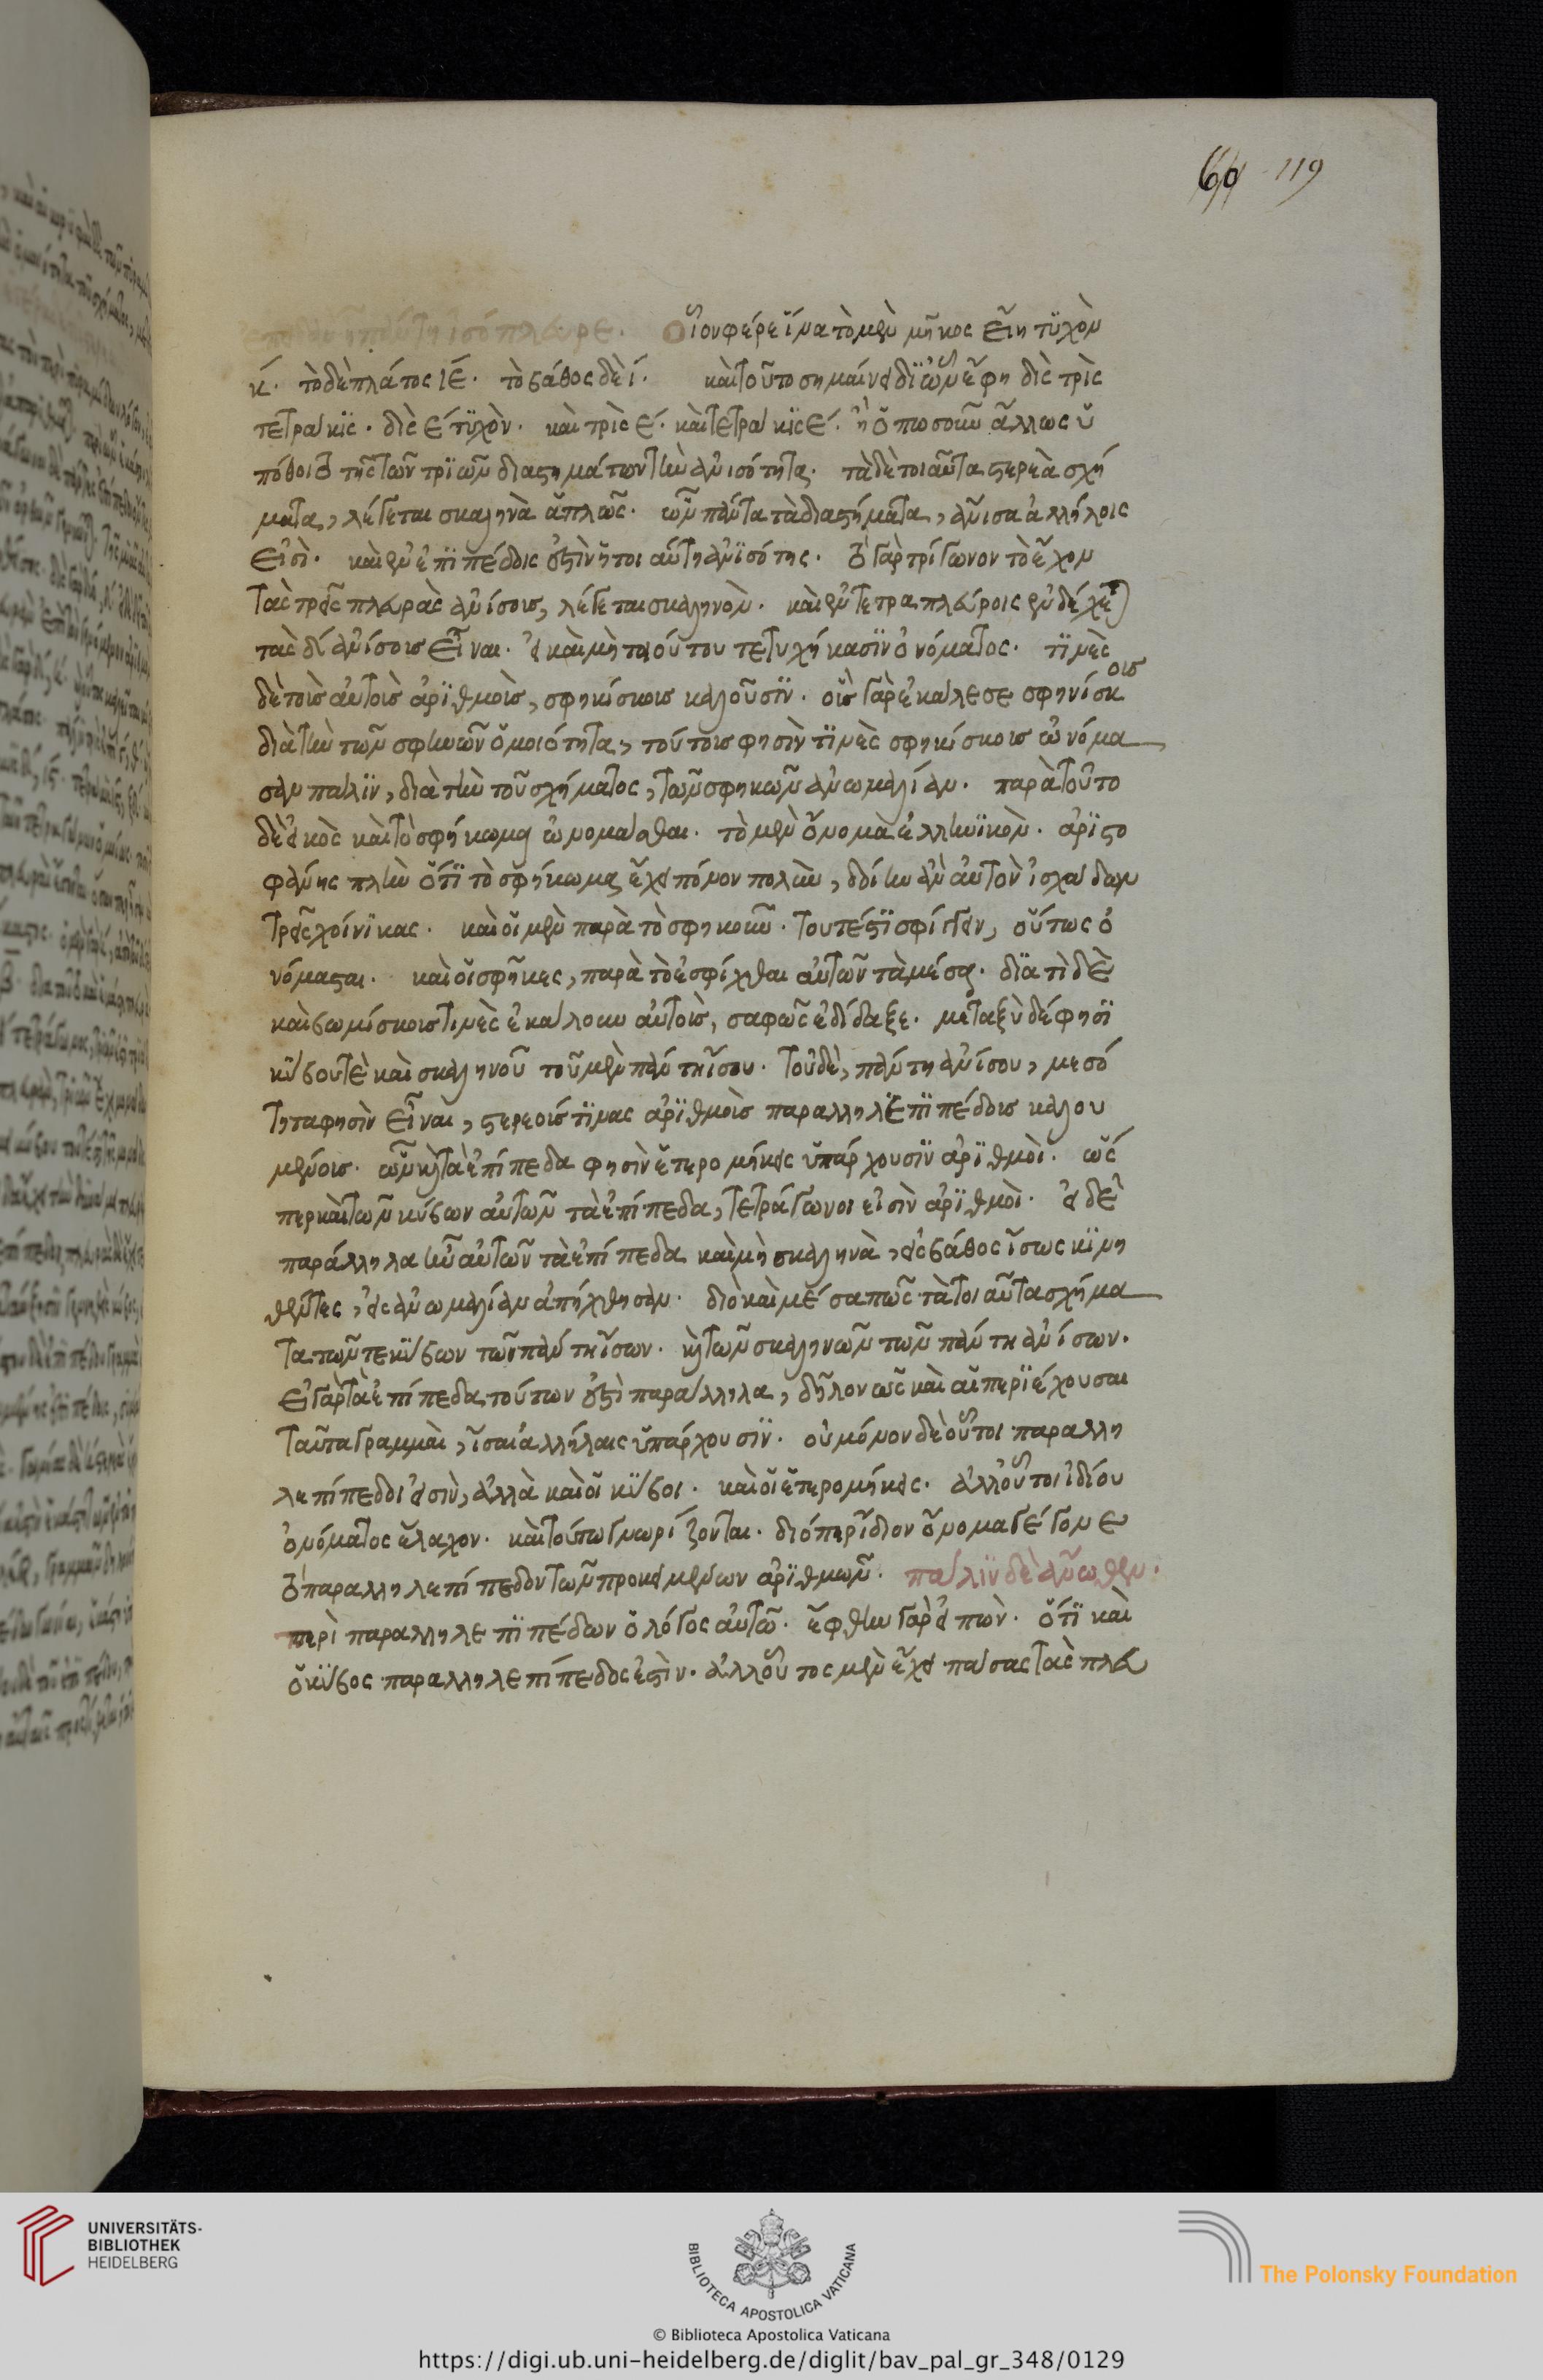 60 119
πάντη πάντῃ ἰσόπλευρε. Οἷον φέρε ἵνα τὸ μὲν μῆκος εἴη τϋχὸν
κ´. τὸ δὲ πλάτος ιε´. τὸ βάθος δὲ ι´. καὶ τοῦτο σημαίνει δϊ ὧν ἔφη δὶς τρὶς
τετράκϊς. δὶς ε´ τϋχὸν. καὶ τρὶς ε´. καὶ τετράκϊς ε´. ἢ ὁπωσοῦν ἄλλως ὑ
πόθοιο τῆς τῶν τρϊῶν διαστημάτων τὴν ἀνισότητα. τὰ δὲ τοιαῦτα στερεὰ σχή
ματα, λέγεται σκαληνὰ ἁπλῶς. ὧν πάντα τὰ διαστήματα, ἄνισα ἀλλήλοις
εἰσὶ. καὶ ἐν ἐπϊπέδοις ἐστὶν ἤτοι αὕτη ἀνϊσότης. τὸ γὰρ τρίγωνον τὸ ἔχον
τὰς τρεῖς πλευρὰς ἀνίσους, λέγεται σκαληνὸν. καὶ ἐν τετραπλεύροις ἐνδέχεται
τὰς δ´ ἀνίσους εἶναι. εἰ καὶ μὴ τοιούτου τετυχήκασϊν ὀνόματος. τϊνὲς
δὲ τοὺς αὐτοὺς ἀρϊθμοὺς, σφηκίσκους καλοῦσϊν. οὓς γὰρ ἐκάλεσε σφηνίσκους
διὰ τὴν τῶν σφηνῶν ὁμοιότητα, τούτους φησὶν τϊνὲς σφηκίσκους ὠνόμα
σαν πάλϊν, διὰ τὴν τοῦ σχήματος, τῶν σφηκῶν ἀνωμαλίαν. παρὰ τοῦτο
δὲ εἰκὸς καὶ τὸ σφήκωμα ὠνομάσθαι. τὸ μὲν ὄνομα ἑλληνϊκὸν. ἀρϊστο
φάνης πλὴν ὅτϊ τὸ σφήκωμα ἔχει πόνον πολὺν, δοίην ἂν αὐτὸν ἰσχάδων
τρεῖς χοίνϊκας. καὶ οἱ μὲν παρὰ τὸ σφηκοῦν. τουτέστϊ σφίγγειν, οὕτως ὀ
νόμασται. καὶ οἱ σφῆκες, παρὰ τὸ ἐσφίχθαι αὐτῶν τὰ μέσα. δϊατὶ δὲ
καὶ βωμίσκους τινὲς ἐκάλουν αὐτοὺς, σαφῶς ἐδίδαξε. μεταξὺ δέ φησϊ
κύβου τὲ καὶ σκαληνοῦ τοῦ μὲν πάντη ἴσου. τοῦ δὲ, πάντη ἀνίσου, μεσό
τητα φησὶν εἶναι, στερεούς τϊνας ἀρϊθμοὺς παραλληλεπϊπέδους καλου
μένους. ὧν καὶ τὰ ἐπίπεδα φησὶν ἑτερομήκεις ὑπάρχουσϊν ἀρϊθμοὶ. ὥς
περ καὶ τῶν κύβων αὐτῶν τὰ ἐπίπεδα, τετράγωνοι εἰσὶν ἀρϊθμοὶ. εἰ δὲ
παράλληλα ἦν αὐτῶν τὰ ἐπίπεδα καὶ μὴ σκαληνὰ, εἰς βάθος ἴσως κϊνη
θέντες, εἰς ἀνωμαλίαν ἀπήχθησαν. διὸ καὶ μέσα πῶς τὰ τοιαῦτα σχήμα
τα τῶν τε κύβων τῶν πάντη ἴσων. καὶ τῶν σκαληνῶν τῶν πάντη ἀνίσων.
εἰ γὰρ τὰ ἐπίπεδα τούτων ἐστὶ παράλληλα, δῆλον ὡς καὶ αἱ περϊέχουσαι
ταῦτα γραμμαὶ, ἴσαι ἀλλήλαις ὑπάρχουσϊν. οὐ μόνον δὲ οὗτοι παραλλη
λεπίπεδοι εἰσὶν, ἀλλὰ καὶ οἱ κύβοι. καὶ οἱ ἑτερομήκεις. ἀλλ' οὗτοι ἰδίου
ὀνόματος ἔλαχον. καὶ τούτω γνωρίζονται. διόπερ ἴδιον ὄνομα γέγονε
τὸ παραλληλεπίπεδον τῶν προκειμένων ἀρϊθμῶν. πάλϊν δὲ ἄνωθεν.
περὶ παραλληλεπϊπέδων ὁ λόγος αὐτῷ. ἔφθην γὰρ εἰπὼν. ὅτϊ καὶ
ὁ κύβος παραλληλεπίπεδος ἐστὶν. ἀλλ' οὗτος μὲν ἔχει πάσας τὰς πλευ
UNIVERSITÄTS-
BIBLIOTHEK
HEIDELBERG
BIBLIOTECA APOSTOLICA VATICANA
The Polonsky Foundation
© Biblioteca Apostolica Vaticana
https://digi.ub.uni-heidelberg.de/diglit/bav_pal_gr_348/0129